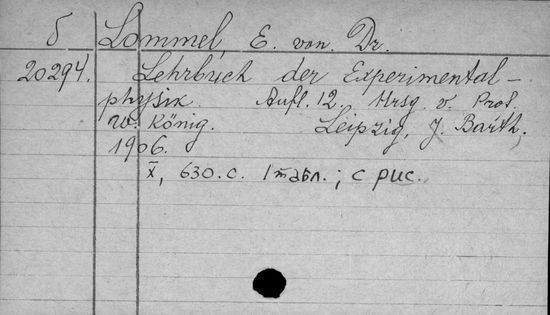 б Lommel, E. von. Dr.
20294. Lehrbuch der Experimental-
physik. Aufl. 12. Hrsg. v. Prof.
W. König. Leipzig, J. Barth,
1906.
X, 630.с. 1 табл.; с рис.